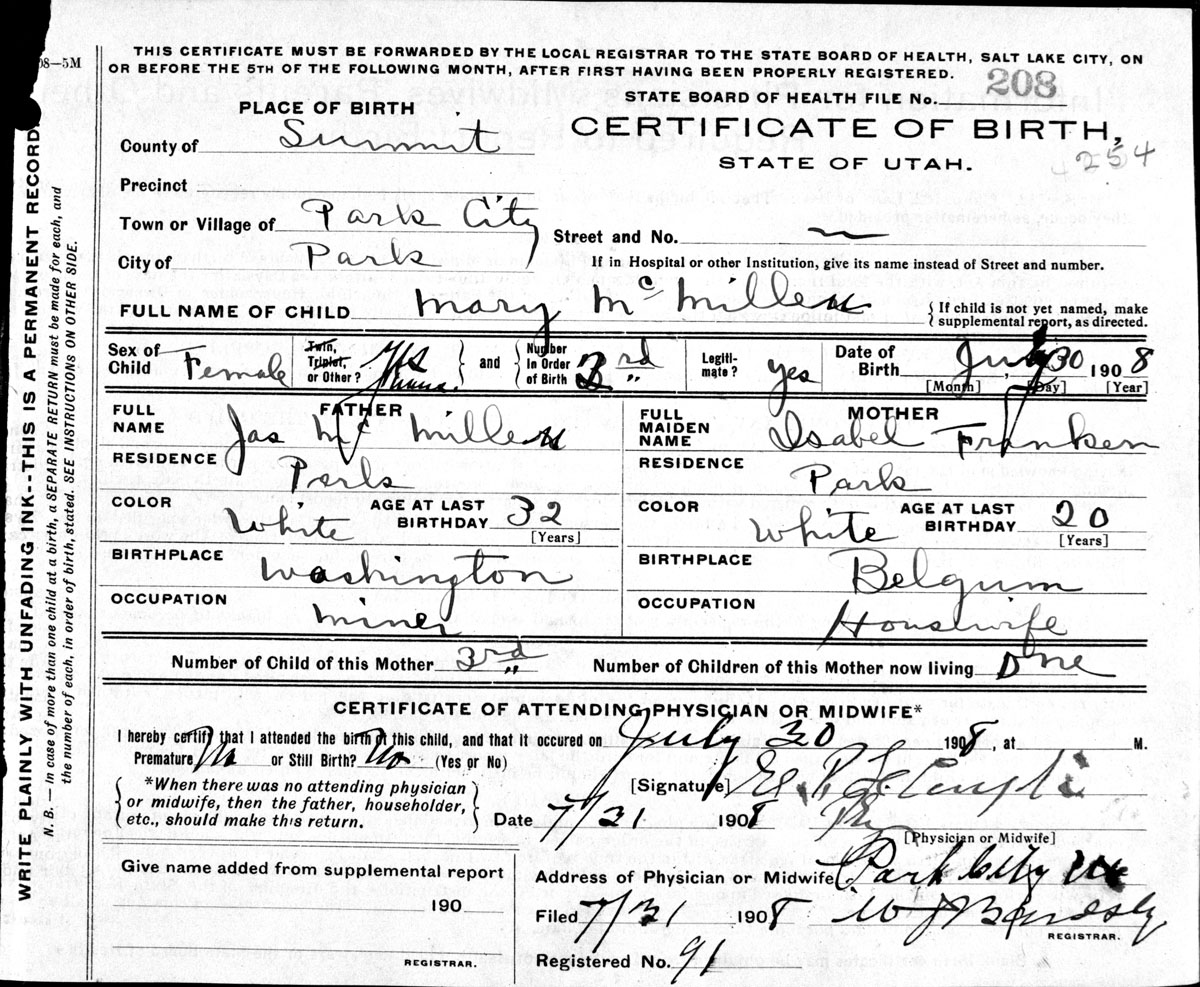 08—5M
THIS CERTIFICATE MUST BE FORWARDED BY THE LOCAL REGISTRAR TO THE STATE BOARD OF HEALTH, SALT LAKE CITY, ON
OR BEFORE THE 5TH OF THE FOLLOWING MONTH, AFTER FIRST HAVING BEEN PROPERLY REGISTERED.
STATE BOARD OF HEALTH FILE No. 208
PLACE OF BIRTH
CERTIFICATE OF BIRTH,
STATE OF UTAH.
254
County of Summit
Precinct
Town or Village of Park City
City of Park
Street and No. —
If in Hospital or other Institution, give its name instead of Street and number.
FULL NAME OF CHILD Mary McMillen
{ If child is not yet named, make
supplemental report, as directed.
Sex of Child Female
Twin, Triplet, or Other?
and
Number in Order of Birth 3rd
Legiti-mate? yes
Date of Birth July 30 1908
[Month] [Day] [Year]
FATHER
FULL NAME Jas McMillen
RESIDENCE Park
COLOR White
AGE AT LAST BIRTHDAY 32
[Years]
BIRTHPLACE Washington
OCCUPATION miner
MOTHER
FULL MAIDEN NAME Isabel Franken
RESIDENCE Park
COLOR White
AGE AT LAST BIRTHDAY 20
[Years]
BIRTHPLACE Belgium
OCCUPATION Housewife
Number of Child of this Mother 3rd
Number of Children of this Mother now living One
CERTIFICATE OF ATTENDING PHYSICIAN OR MIDWIFE*
I hereby certify that I attended the birth of this child, and that it occured on July 30 1908 at M.
Premature No or Still Birth? No (Yes or No)
*When there was no attending physician
or midwife, then the father, householder,
etc., should make this return.
[Signature]
Date 7/31 1908
[Physician or Midwife]
Give name added from supplemental report
190
REGISTRAR.
Address of Physician or Midwife Park City
Filed 7/31 1908
REGISTRAR.
Registered No. 91
WRITE PLAINLY WITH UNFADING INK--THIS IS A PERMANENT RECORD
N. B. — In case of more than one child at a birth, a SEPARATE RETURN must be made for each, and
the number of each, in order of birth, stated. SEE INSTRUCTIONS ON OTHER SIDE.